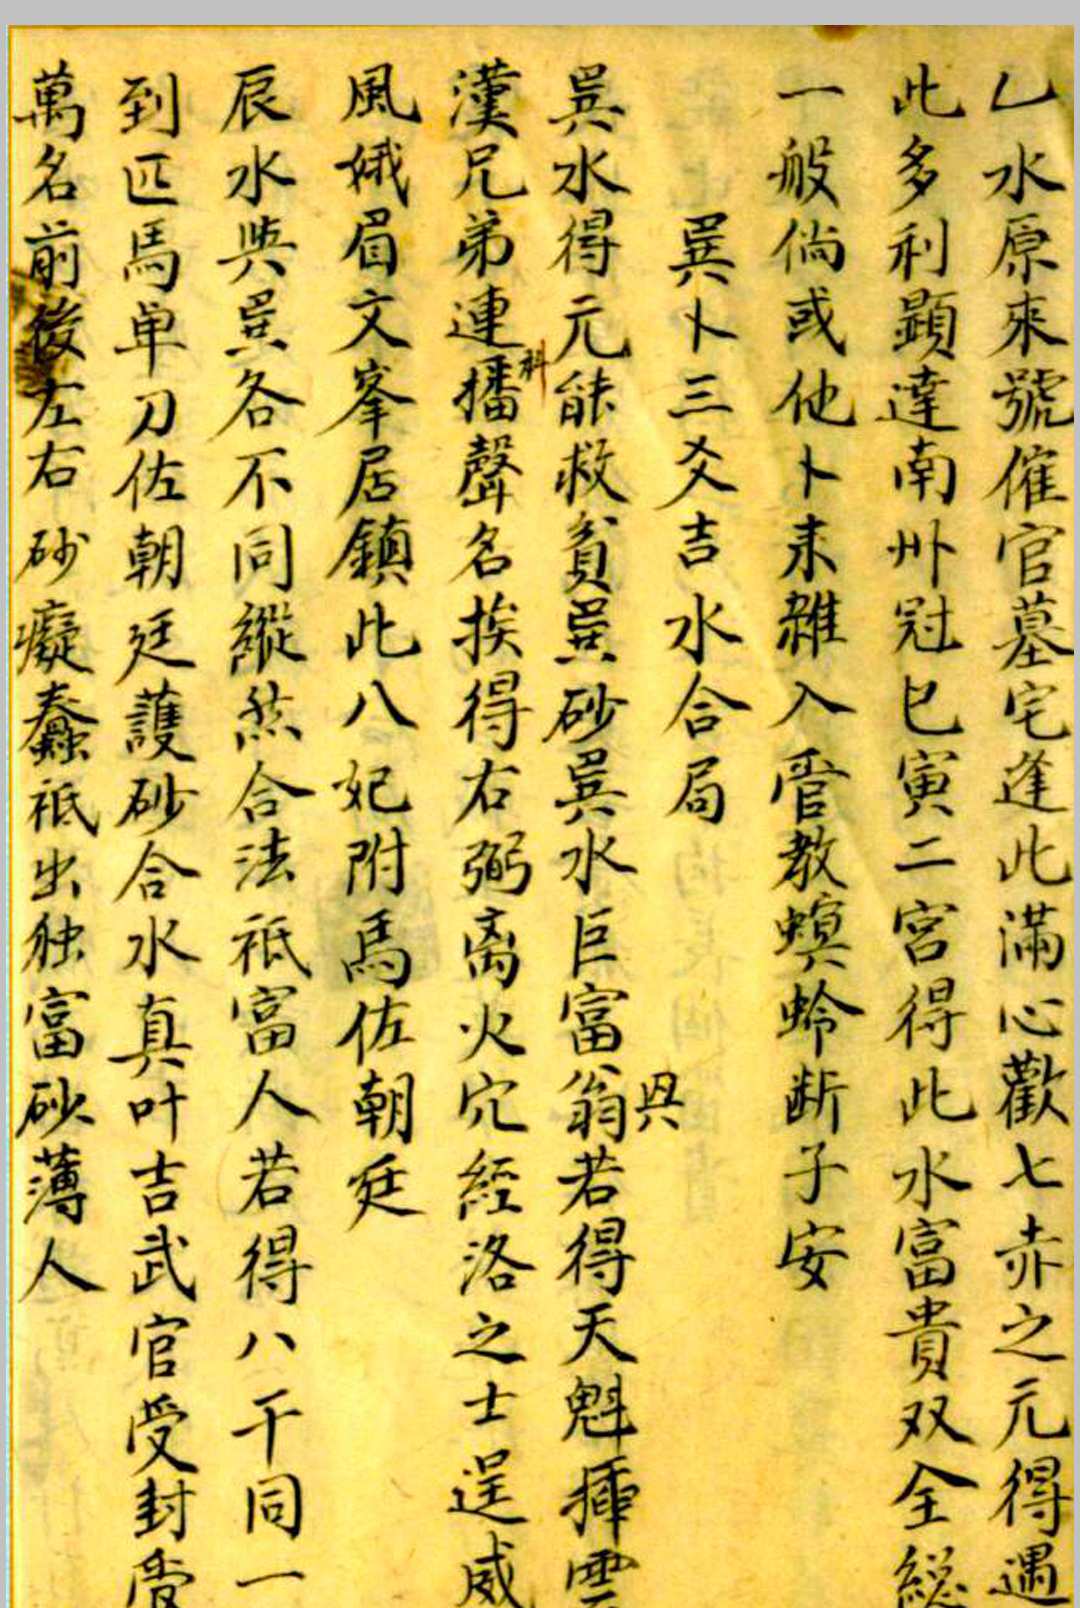 乙水原來號催官墓宅逢此滿心歡七赤之元得遇
此多利顕達南州冠巳寅二宮得此水富貴双全総
一般倘或他卜来雜入管教螟蛉断子安
巽卜三爻吉水合局
巽水得元能救貧巽砂巽水巨富翁若得天魁揷雲
巽
漢兄弟連播聲名挨得右弼离火穴經洛之士逞威
科
風娥眉文峯居鎮此八妃附馬佐朝廷
辰水與巽各不同縱然合法祗富人若得八干同一
到匹馬单刀佐朝廷護砂合水真叶吉武官受封
萬名前後左右砂癡蠢祗出独富砂薄人